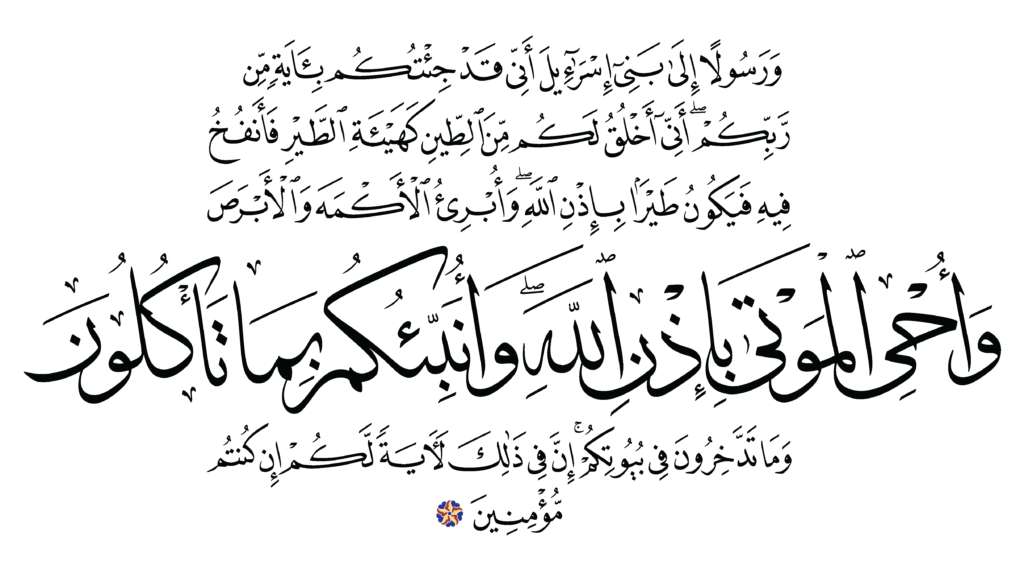 وَرَسُولًا إِلَىٰ بَنِىٓ إِسْرَٰٓءِيلَ أَنِّى قَدْ جِئْتُكُم بِـَٔايَةٍ مِّن
رَّبِّكُمْ ۖ أَنِّىٓ أَخْلُقُ لَكُم مِّنَ ٱلطِّينِ كَهَيْـَٔةِ ٱلطَّيْرِ فَأَنفُخُ
فِيهِ فَيَكُونُ طَيْرًۢا بِإِذْنِ ٱللَّهِ ۖ وَأُبْرِئُ ٱلْأَكْمَهَ وَٱلْأَبْرَصَ
وَأُحْىِ ٱلْمَوْتَىٰ بِإِذْنِ ٱللَّهِ ۖ وَأُنَبِّئُكُم بِمَا تَأْكُلُونَ
وَمَا تَدَّخِرُونَ فِى بُيُوتِكُمْ ۚ إِنَّ فِى ذَٰلِكَ لَـَٔايَةً لَّكُمْ إِن كُنتُم
مُّؤْمِنِينَ